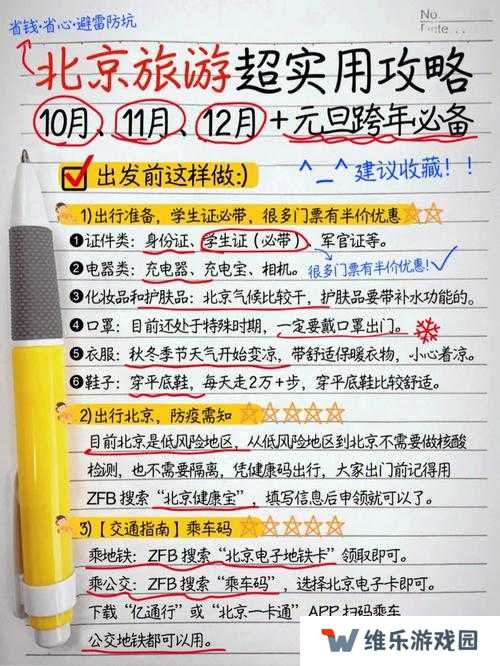 省钱·省心·避雷防坑
No.
北京旅游超实用攻略
10月、11月、12月+元旦跨年必备
出发前这样做:)
^_^建议收藏！！
1)出行准备，学生证必带，很多门票有半价优惠
❶证件类：身份证、学生证（必带）、军官证等。
❷电器类：充电器、充电宝、相机。
很多门票有半价优惠!
❸化妆品和护肤品：北京气候比较干，护肤品要带补水功能的。
❹口罩：目前还处于特殊时期，一定要戴口罩出门。
❺衣服：秋冬季节天气开始变凉，带舒适保暖衣物，小心着凉。
❻鞋子：穿平底鞋，每天走2万+步，穿平底鞋比较舒适。
2)出行北京，防疫需知
目前北京是低风险地区，从低风险地区到北京不需要做核酸
检测，也不需要隔离，凭健康码出行，大家出门前记得用
ZFB搜索“北京健康宝”，填写信息后申领就可以了。
3)【交通指南】乘车码
乘地铁：ZFB搜索“北京电子地铁卡”领取即可。
乘公交：ZFB搜索“乘车码”，选择北京电子卡即可。
下载“亿通行”或“北京一卡通”APP扫码乘车
公交地铁都可以用。
维乐游戏园